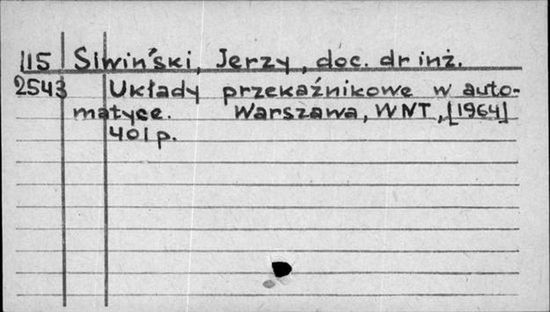 115 Siwiński, Jerzy, doc. dr inż.
2543 Układy przekaźnikowe w auto-
matyce. Warszawa, WNT, [1964]
401p.